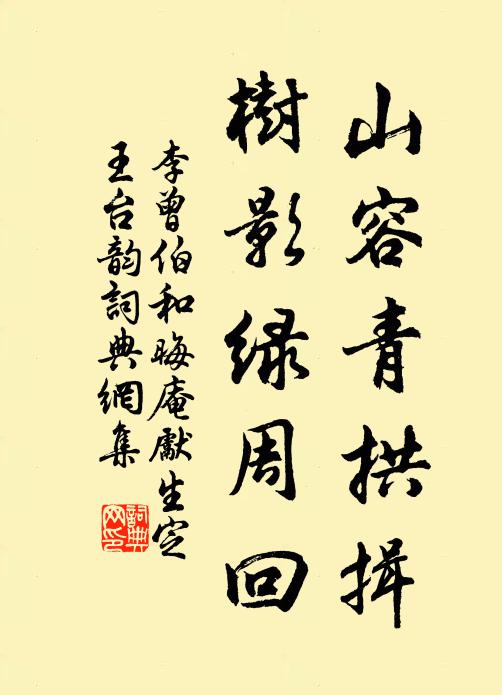 山容青拱揖
樹影綠周回
李曾伯和晦庵獻生定
王台韵詞典網集
詞典
网印